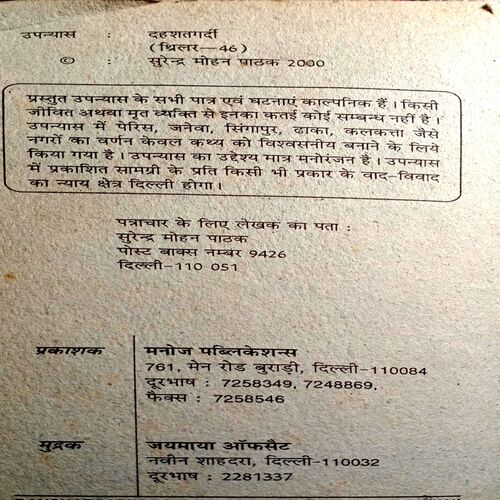 उपन्यास : दहशतगर्दी
(थ्रिलर—46)
© : सुरेन्द्र मोहन पाठक 2000
प्रस्तुत उपन्यास के सभी पात्र एवं घटनाएं काल्पनिक हैं । किसी
जीवित अथवा मृत व्यक्ति से इनका कतई कोई सम्बन्ध नहीं है ।
उपन्यास में पेरिस, जनेवा, सिंगापुर, ढाका, कलकत्ता जैसे
नगरों का वर्णन केवल कथ्य को विश्वसनीय बनाने के लिये
किया गया है । उपन्यास का उद्देश्य मात्र मनोरंजन है । उपन्यास
में प्रकाशित सामग्री के प्रति किसी भी प्रकार के वाद-विवाद
का न्याय क्षेत्र दिल्ली होगा ।
पत्राचार के लिए लेखक का पता :
सुरेन्द्र मोहन पाठक
पोस्ट बाक्स नम्बर 9426
दिल्ली-110 051
प्रकाशक मनोज पब्लिकेशन्स
761, मेन रोड बुराड़ी, दिल्ली-110084
दूरभाष : 7258349, 7248869,
फैक्स : 7258546
मुद्रक जयमाया ऑफसैट
नवीन शाहदरा, दिल्ली-110032
दूरभाष : 2281337